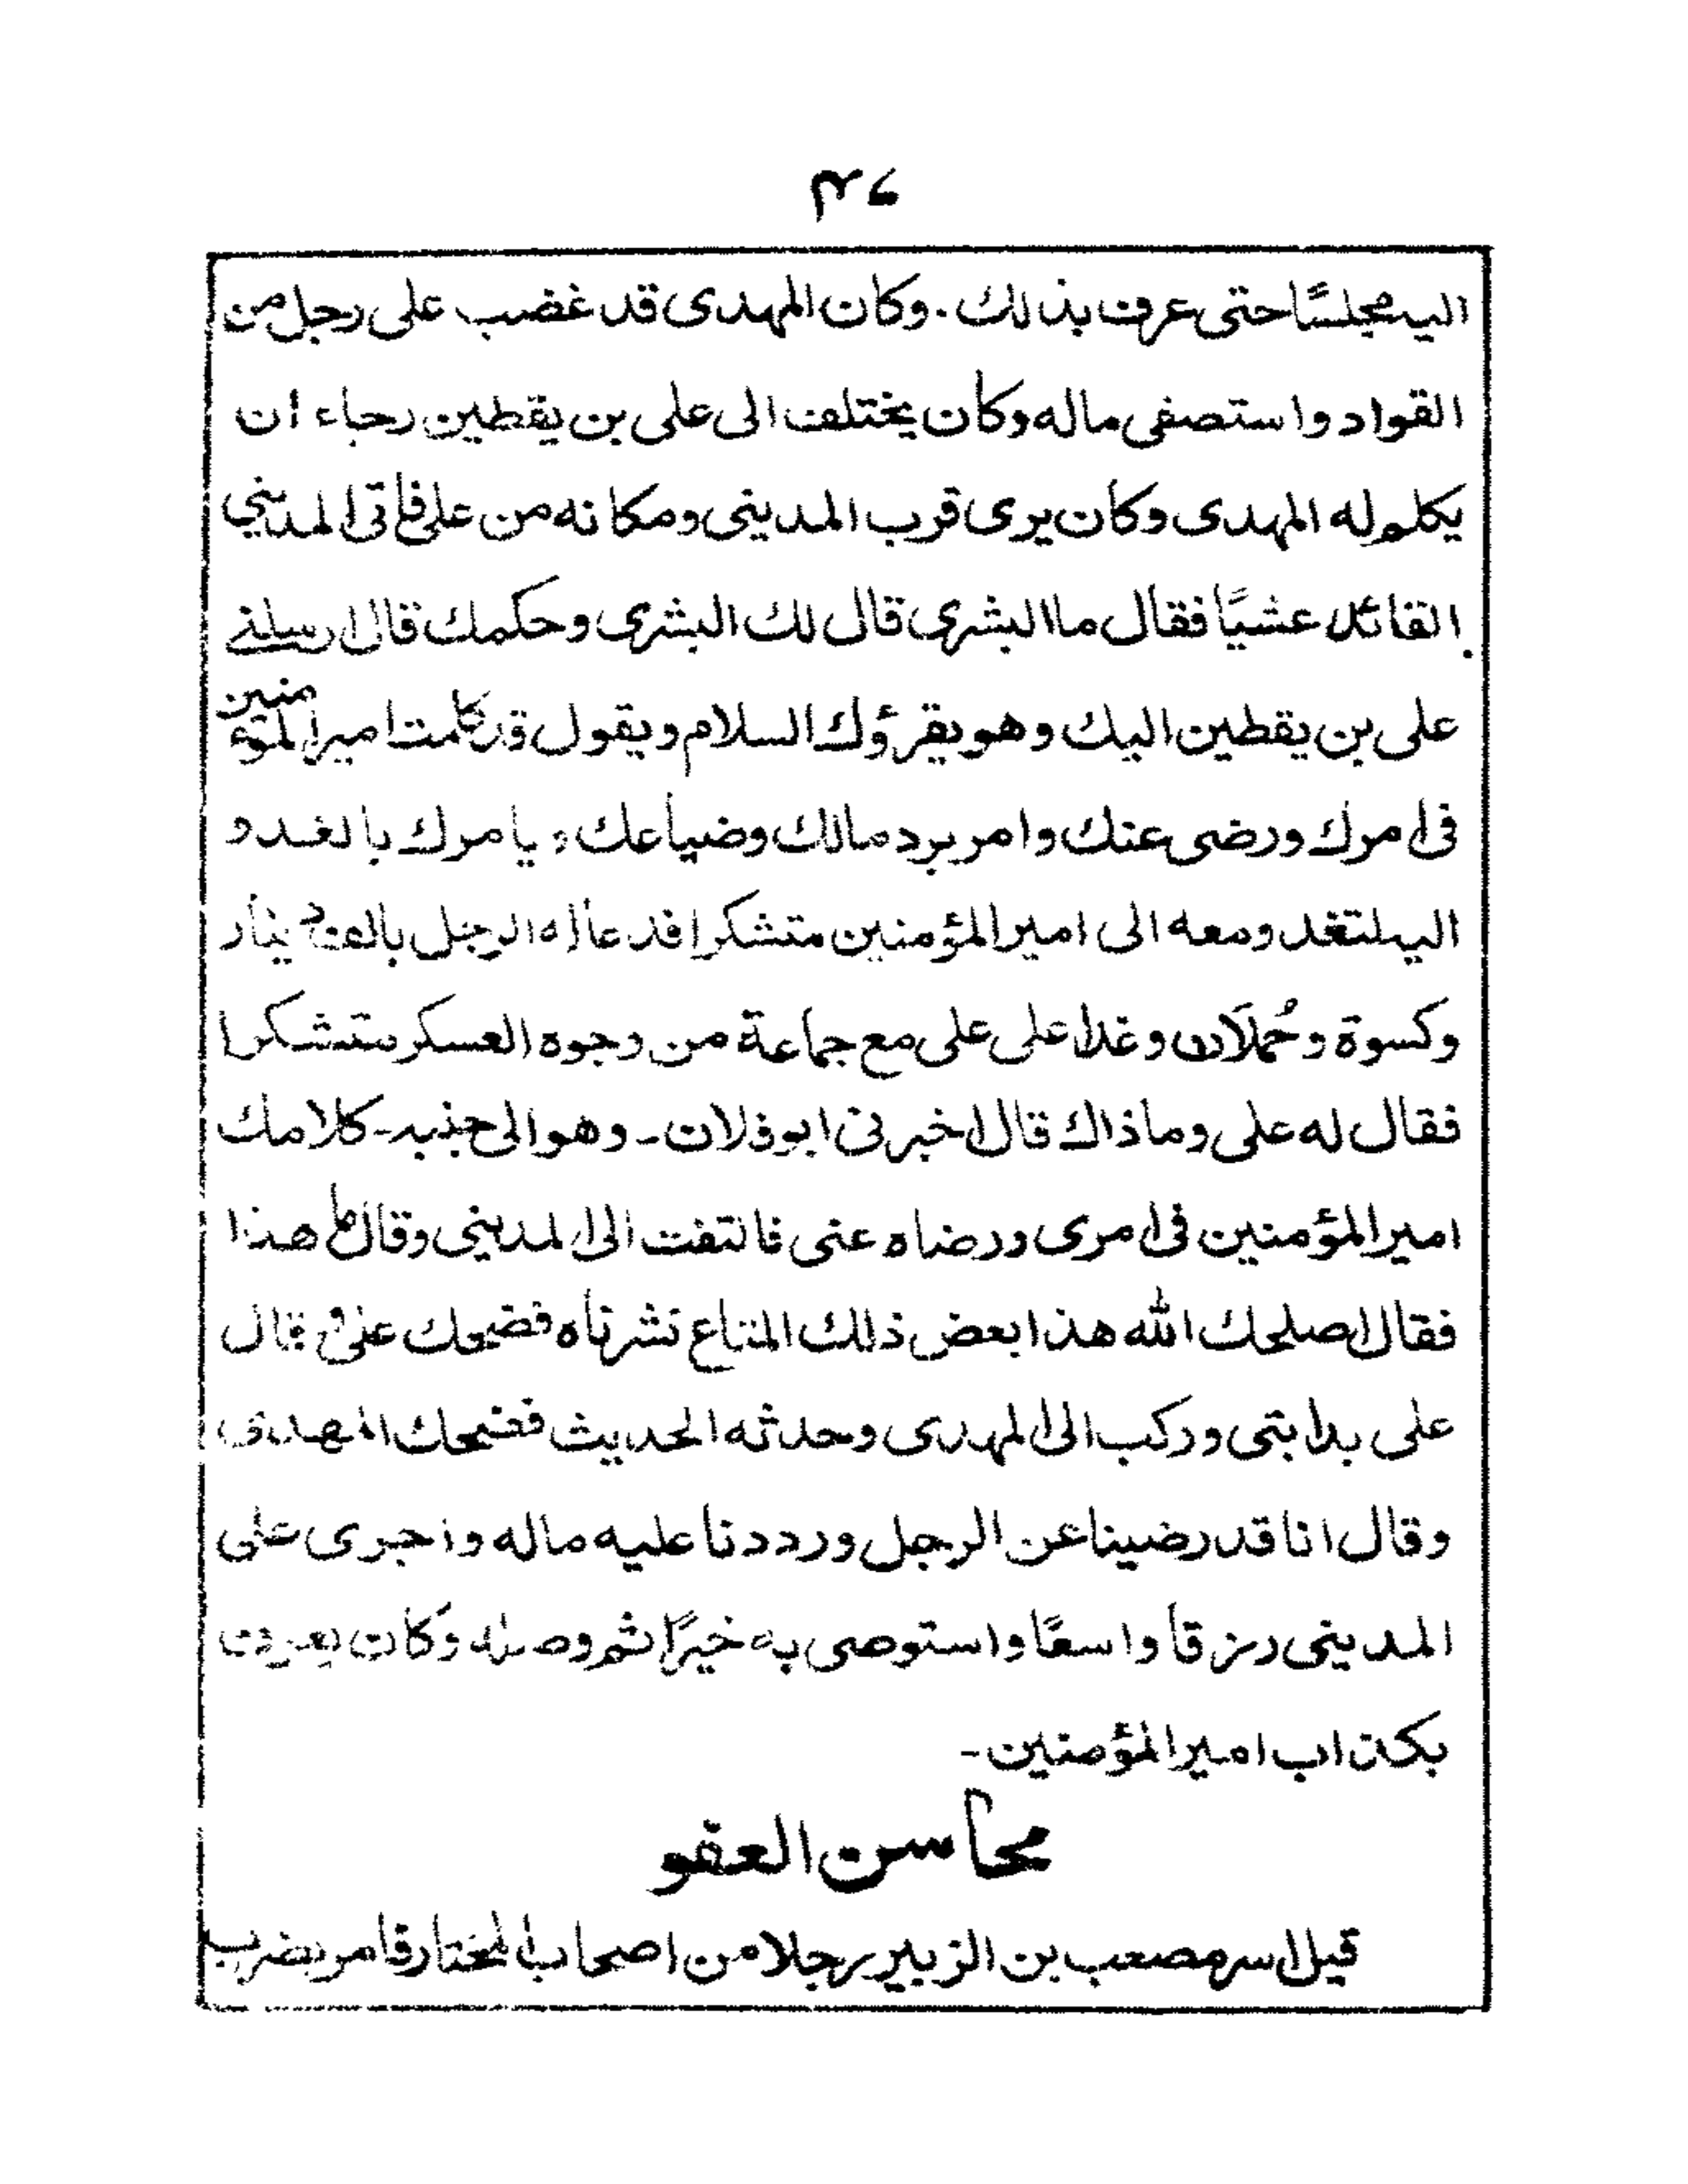 ٣٤
اليه مجلسًا حتى عرف بذلك. وكان المهدى قد غضب على رجل من
القواد واستصفى ماله وكان يختلف الى على بن يقطين رجاء ان
يكلم له المهدى وكان يرى قرب المدينى ومكانه من على فاتى المديني
القائد عشيًا فقال ما البشرى قال لك البشرى وحكمك قال ارسلنے
على بن يقطين اليك وهو يقرؤك السلام ويقول قد كلمت امير المؤمنين
فى امرك ورضى عنك وامر برد مالك وضياعك ويامرك بالغدو
اليه لتغد ومعه الى امير المؤمنين متشكرا فدعا له الرجل بالف دينار
وكسوة وحُملَان وغدا على على مع جماعة من وجوه العسكر متشكرا
فقال له على وما ذاك قال اخبرنى ابو فلان - وهو الى جنبه - كلامك
امير المؤمنين فى امرى ورضاه عنى فالتفت الى المدينى وقال ما هذا
فقال اصلحك الله هذا بعض ذلك المتاع نشرناه فضحك على وقال
على بدابتى وركب الى المهدى وحدثه الحديث فضحك المهدى
وقال انا قد رضينا عن الرجل ورددنا عليه ماله واجرى على
المدينى رزقا واسعًا واستوصى به خيرًا ثم وصله وكان يعرف
بكذاب امير المؤمنين -
محاسن العفو
قيل اسر مصعب بن الزبير رجلا من اصحاب المختار فامر بضرب